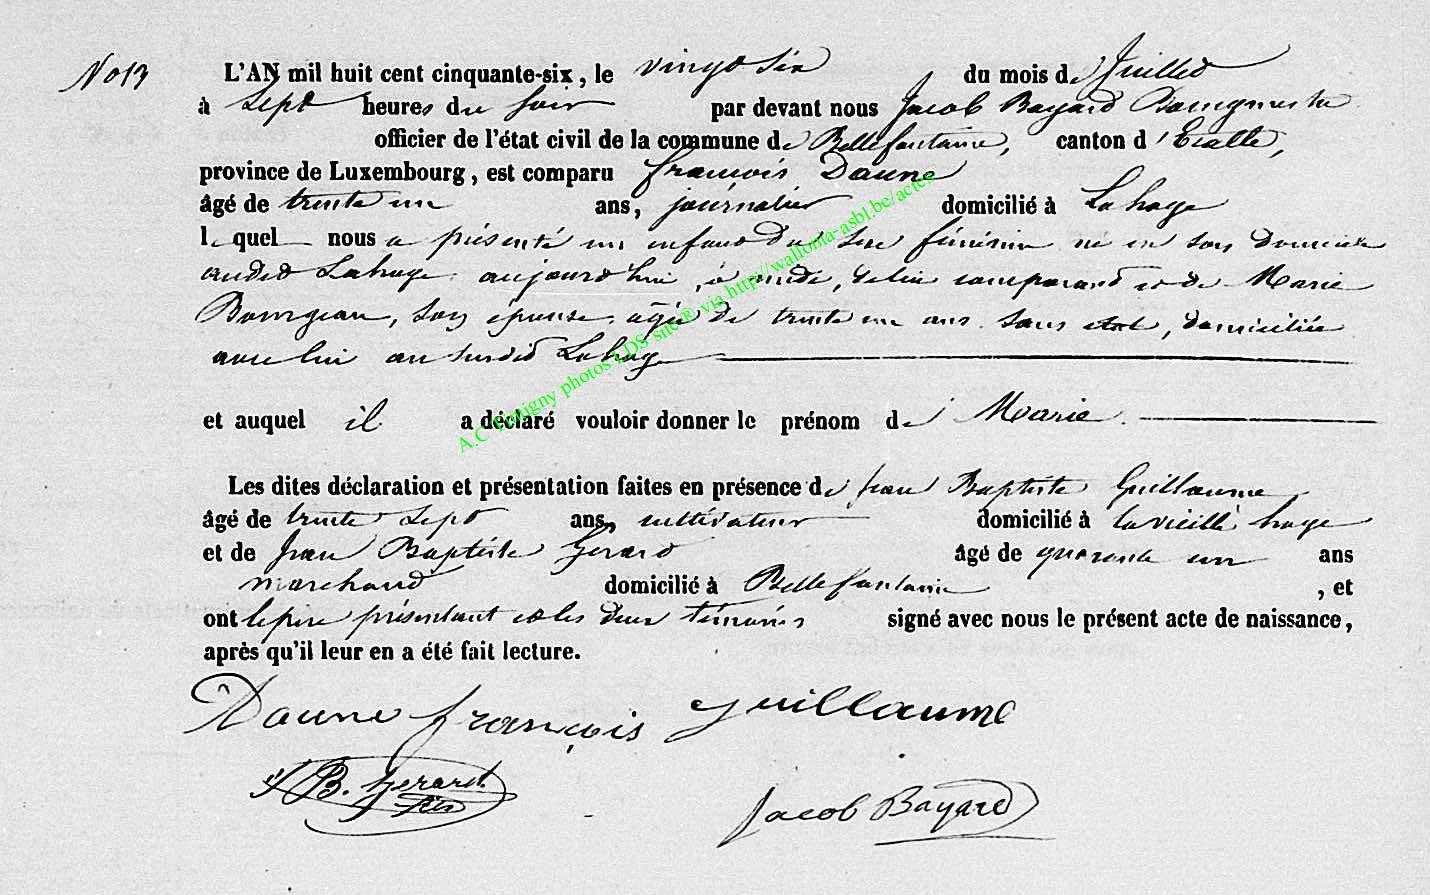 No 13
L'AN mil huit cent cinquante-six, le vingt six du mois de Juillet
à Sept heures du soir par devant nous Jacob Bayard Bourgmestre
officier de l'état civil de la commune de Bellefontaine, canton d'Etalle,
province de Luxembourg, est comparu François Daune
âgé de trente un ans, journalier domicilié à Lahage
lequel nous a présenté un enfant du sexe féminin né en son domicile
audit Lahage aujourd'hui, à midi, de lui comparant et de Marie
Bourgeau, son épouse, agée de trente un ans. sans état, domiciliée
avec lui au susdit Lahage
et auquel il a déclaré vouloir donner le prénom de Marie
Les dites déclaration et présentation faites en présence de Jean Baptiste Guillaume
âgé de trente sept ans, cultivateur domicilié à la vieille hage
et de Jean Baptiste Gerard âgé de quarente un ans
marchand domicilié à Bellefontaine, et
ont le père présentant et les deux témoins signé avec nous le présent acte de naissance,
après qu'il leur en a été fait lecture.
Daune françois Guillaume
J B. Gerard. fils
Jacob Bayard
A.C Tintigny photos LDS site® via http//wallonia-asbl.be/actes